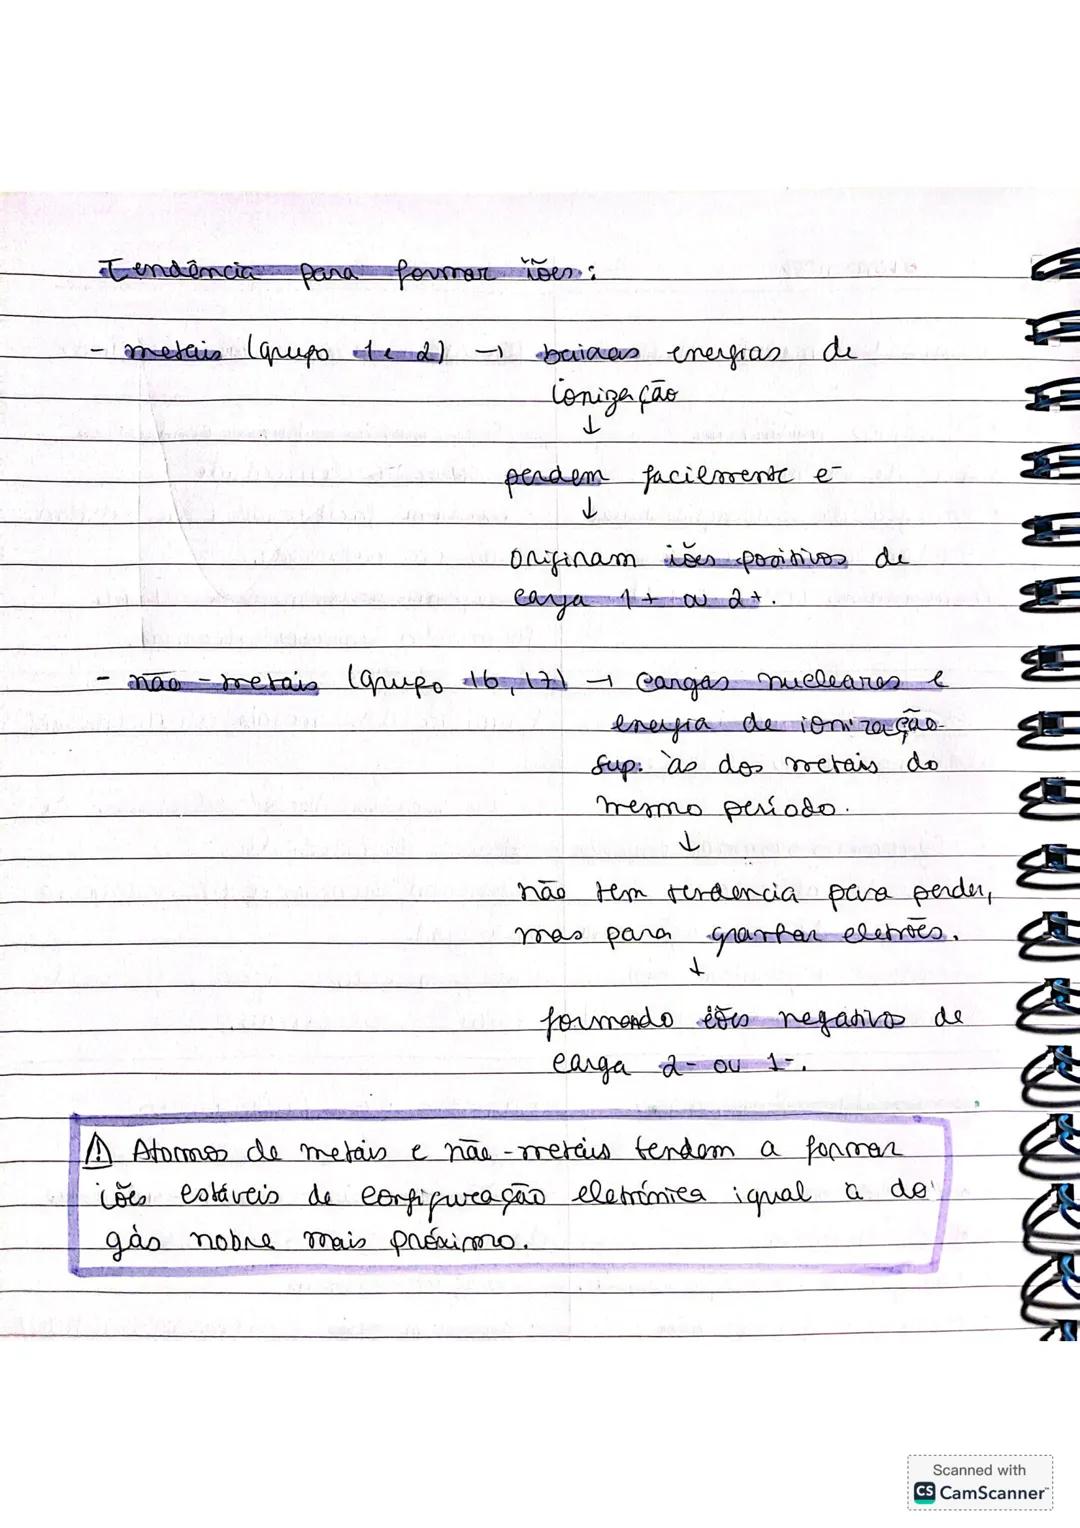 Tendência para formar iões:
- metais (grupo 1 e 2) → baixas energias de
ionização
↓
perdem facilmente e-
↓
originam iões positivos de
carga 1+ ou 2+.
- não-metais (grupo 16, 17) → cargas nucleares e
energia de ionização
sup. às dos metais do
mesmo período.
↓
não tem tendencia para perder,
mas para ganhar eletrões.
↓
formando iões negativos de
carga 2- ou 1-.
⚠ Atomos de metais e não-metais tendem a formar
iões estáveis de configuração eletrónica igual à do
gás nobre mais próximo.
Scanned with
CS CamScanner